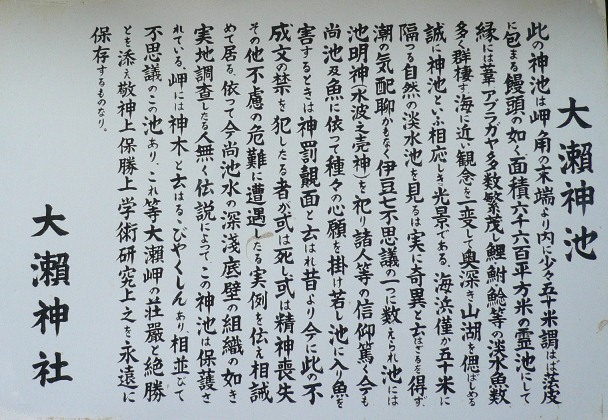 大瀬神池
此の神池は岬角の末端より内に少々五十米謂はば法度
に包まる饅頭の如く面積六千六百平方米の霊池にして
縁には葦アブラガヤ多数繁茂し鯉鮒鯰等の淡水魚数
多く群棲す海に近い観念を一変して奥深き山湖を偲ばしめる
誠に神池といふ相応しき光景である、海浜僅か五十米に
隔つる自然の淡水池を見るは実に奇異と云はざるを得ず
潮の気配聊かもなく伊豆七不思議の一に数えられ池には
池明神(水波之売神)を祀り諸人等の信仰篤く今でも
尚池及魚に依って種々の心願を掛け若し池に入り魚を
害するときは神罰覿面と云はれ昔より今に此の不
成文の禁を犯したる者が或は死し或は精神喪失
その他不慮の危難に遭遇したる実例を伝え相誡
めて居る、依って今尚池水の深浅底壁の組織の如き
実地調査したる人無く伝説によってこの神池は保護さ
れている、岬には神木と云はるゝびやくしんあり、相並びて
不思議のこの池あり、これ等大瀬岬の荘厳と絶勝
とを添え敬神上保勝上学術研究上之を永遠に
保存するものなり。
大瀬神社